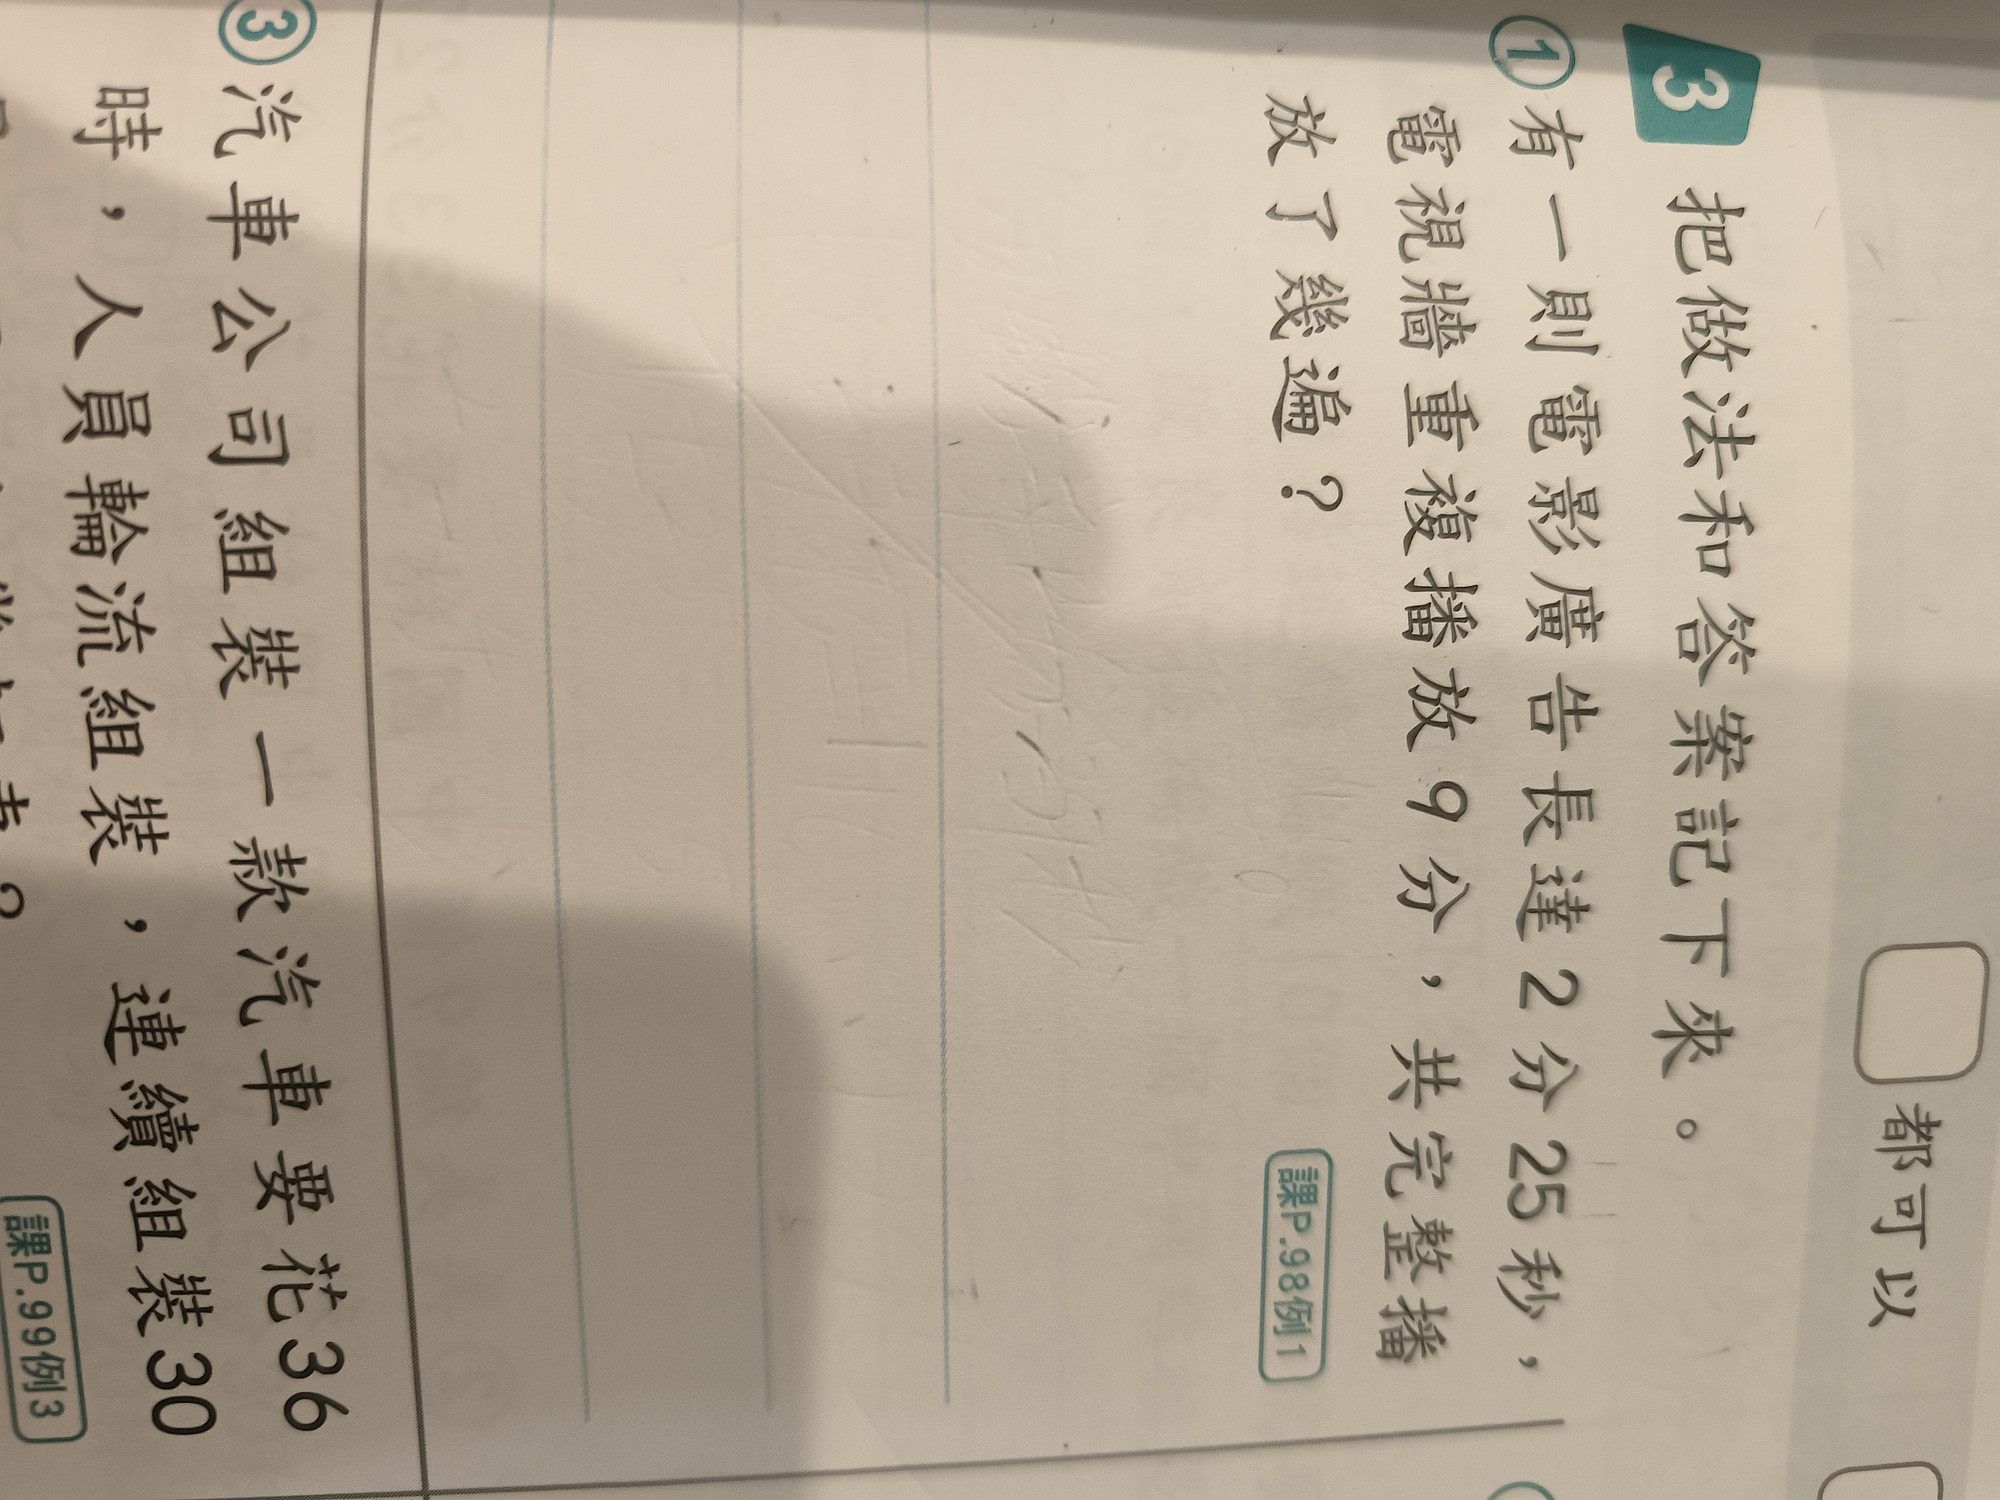 都可以
3 把做法和答案記下來。
① 有一則電影廣告長達2分25秒，
電視牆重複播放9分，共完整播
放了幾遍？
課P.98例1
③ 汽車公司組裝一款汽車要花36
時，人員輪流組裝，連續組裝30
課P.99例3